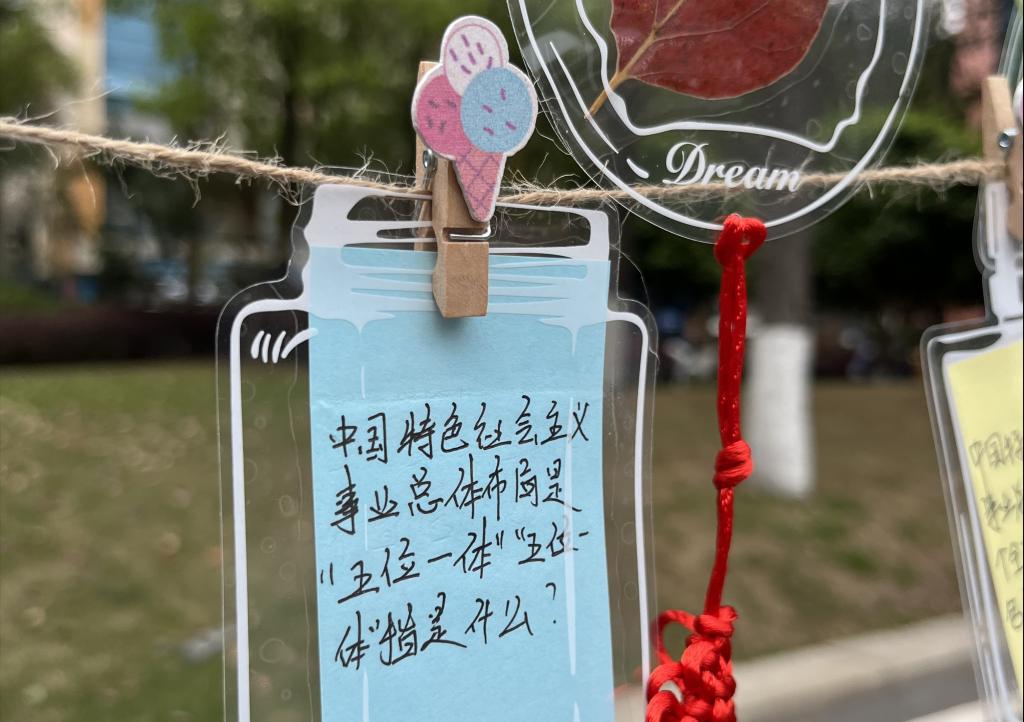 Dream
中国特色社会主义
事业总体布局是
“五位一体”“五位一
体”指是什么?
中国特
事业